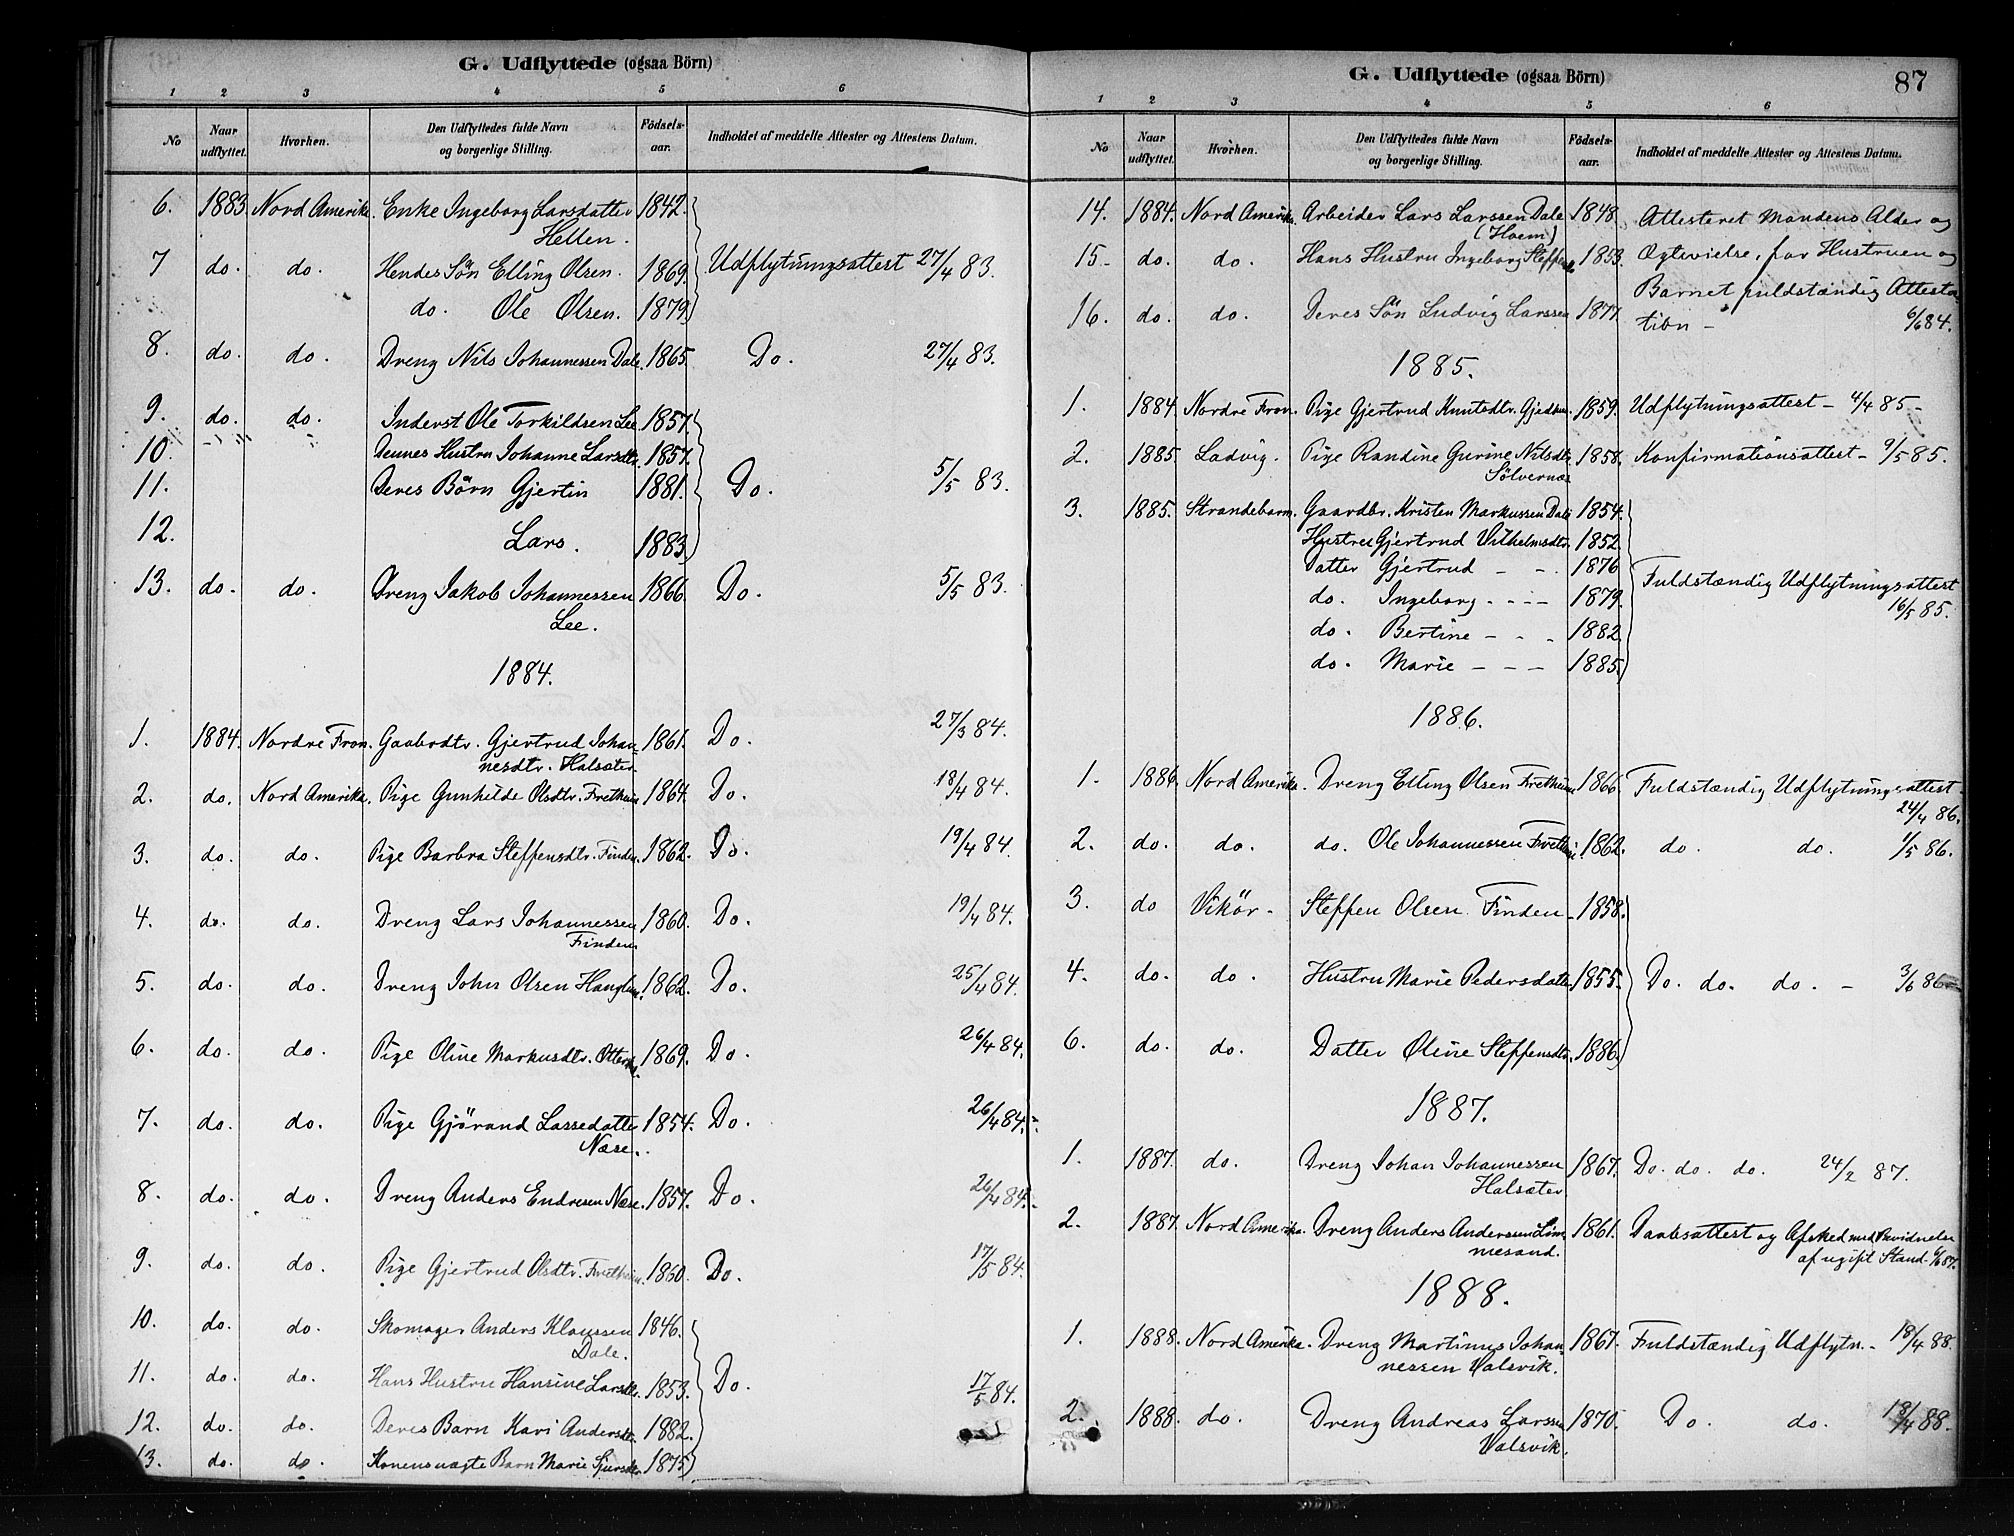 G. Udflyttede (ogsaa Börn)
1 2 3 4 5 6
No Naar udflyttet. Hvorhen. Den Udflyttedes fulde Navn og borgerlige Stilling. Födsels-aar. Indholdet af meddelte Attester og Attestens Datum.
6. 1883 Nord Amerika. Enke Ingeborg Larsdatter 1842.
Hellen.
7 do. do. Hendes Sön Elling Olsen. 1869. Udflytningsattest 27/4 83.
do. Ole Olsen. 1879.
8. do. do. Dreng Nils Johannessen Dale. 1865. Do. 27/4 83.
9. do. do. Inderst Ole Torkildsen Lee 1857.
10. Dennes Hustru Johanne Larsdtr. 1857.
11. Deres Börn Gjertin 1881. Do. 5/5 83.
12. Lars. 1883.
13. do. do. Dreng Jakob Johannessen 1866. Do. 5/5 83.
Lee.
1884.
1. 1884. Nordre Fron. Gjertrud Johan- 1861. Do. 27/3 84.
nesdtr. Halsæter.
2. do. Nord Amerika. Pige Gunhilde Olsdtr. Fretheim 1864. Do. 18/4 84.
3. do. do. Pige Barbra Steffensdtr. Finden. 1862. Do. 19/4 84.
4. do. do. Dreng Lars Johannessen 1860. Do. 19/4 84.
Finden.
5. do. do. Dreng John Olsen 1862. Do. 25/4 84.
6. do. do. Pige Oline Markusdtr. 1869. Do. 26/4 84.
7. do. do. Pige Gjörand Lassedatter 1854. Do. 26/4 84.
Nese.
8. do. do. Dreng Anders Endresen Nese. 1857. Do. 26/4 84.
9. do. do. Pige Gjertrud Olsdtr. Fretheim. 1860. Do. 17/5 84.
10. do. do. Skomager Anders Klaussen 1846.
Dale.
11. do. do. Hans Hustru Hansine Larsdtr. 1853. Do. 17/5 84.
12. do. do. Deres Barn Kari Andersdtr. 1882.
13. do. do. Konens uægte Barn Marie Sjursdtr. 1875
G. Udflyttede (ogsaa Börn) 87
1 2 3 4 5 6
No Naar udflyttet. Hvorhen. Den Udflyttedes fulde Navn og borgerlige Stilling. Födsels-aar. Indholdet af meddelte Attester og Attestens Datum.
14. 1884. Nord Amerika. Arbeider Lars Larssen Dale 1848. Attesteret Mandens Alder og
(Hoem)
15. do. do. Hans Hustru Ingeborg 1853. Ægtevielse, for Hustruen og
Barnet fuldstændig Attesta-
16. do. do. Deres Sön Ludvig Larssen 1877. tion - 6/6 84.
1885.
1. 1884. Nordre Fron. Pige Gjertrud Knutsdtr. 1859. Udflytningsattest - 4/4 85 -
2. 1885. Ladvig. Pige Randine Gurine Nilsdtr. 1858. Konfirmationsattest - 9/5 85.
Sölvernes
3. 1885. Strandebarm. Gaardbr. Kristen Markussen Dale 1854.
Hustru Gjertrud Vilhelmsdtr. 1852.
Datter Gjertrud - - 1876
do. Ingeborg - - - 1879. Fuldstændig Udflytningsattest
do. Bertine - - - 1882 16/5 85.
do. Marie - - - 1885.
1886.
1. 1886. Nord Amerika. Dreng Elling Olsen Fretheim 1866. Fuldstændig Udflytningsattest.
24/4 86.
2. do. do. do. Ole Johannessen Fretheim. 1862. do. do. 1/5 86.
3. do Vikör - Steffen Olsen Finden - 1858.
4. do. do. Hustru Marie Pedersdatter 1855. Do. do. do. - 3/6 86
6. do. do. Datter Oline Steffensdtr. 1886.
1887.
1. 1887. do. Dreng Johan Johannessen 1867. Do. do. do. 24/2 87.
Halsæter
2. 1887. Nord Amerika. Dreng Anders Anderssen Lim- 1861. Daabsattest og Afsked med Bevidnelse
mesand. af ugift Stand
1888.
1. 1888. Nord Amerika. Dreng Martinus Johan- 1867. Fuldstændig Udflytn. - 18/4 88.
nessen Valsvik.
2. 1888. do. Dreng Andreas Larssen 1870. Do. do. 18/4 88.
Valsvik.